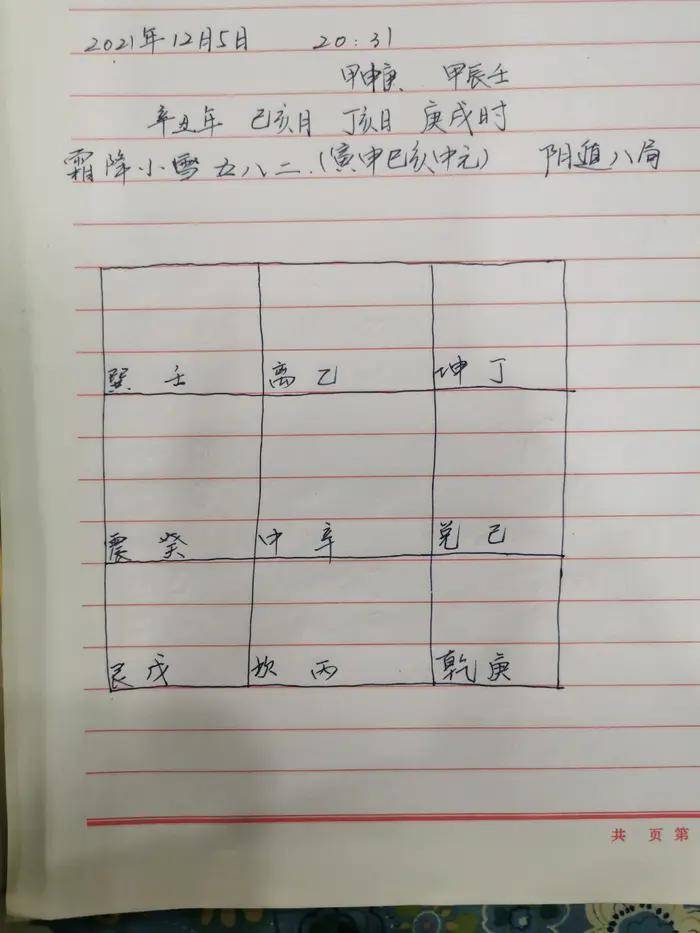 2021年12月5日 20:31
甲申庚 甲辰壬
辛丑年 己亥月 丁亥日 庚戌时
霜降小雪五八二.(寅申巳亥中元) 阴遁八局
巽 壬 离 乙 坤 丁
震 癸 中 辛 兑 己
艮 戊 坎 丙 乾 庚
共 页 第